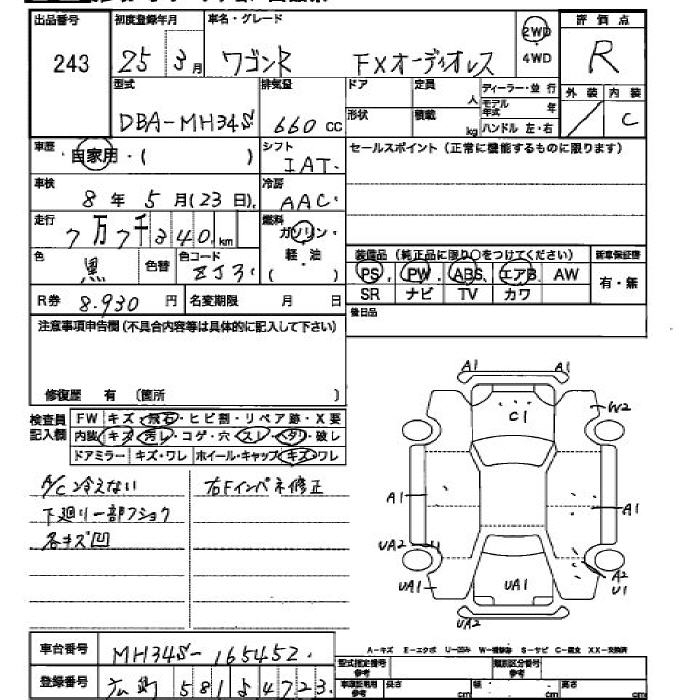 出品番号 初度登録年月 車名・グレード 2WD 評価点
243 25 3月 ワゴンR FXオーディオレス 4WD R
型式 排気量 ドア 定員 人 ディーラー・並行 外装 内装
DBA-MH34S 660cc 形状 積載 kg モデル年式 年 ハンドル 左・右 / C
車歴 自家用・( ) シフト IAT. セールスポイント(正常に機能するものに限ります)
車検 8年5月(23日) 冷房 AAC.
走行 7万7千340km 燃料 ガソリン・軽油・( )
色 黒 色替 色コード ZJ3.
装備品(純正品に限り○をつけてください) 新車保証書
PS PW ABS エアB AW 有・無
SR ナビ TV カワ
R券 8.930円 名変期限 月 日 後日品
注意事項申告欄(不具合内容等は具体的に記入して下さい)
修復歴 有 (箇所 )
検査員記入欄 FW キズ・飛石・ヒビ割・リペア跡・X要
内装 キズ・汚レ・コゲ・穴・スレ・ヘタリ・破レ
ドアミラー キズ・ワレ ホイール・キャップ キズ・ワレ
A/C冷えない 右Fインパネ修正
下廻り一部フショク
各キズ凹
A1 A1
C1 W2
A1 A1
UA2 A2
UA1 UA1 U1
UA2
車台番号 MH34S-165452.
登録番号 581 よ 4723
A-キズ E-エクボ U-凹み W-補修跡 S-サビ C-腐食 XX-交換済
型式指定番号 参考 類別区分番号 参考
長さ cm 幅 cm 高さ cm